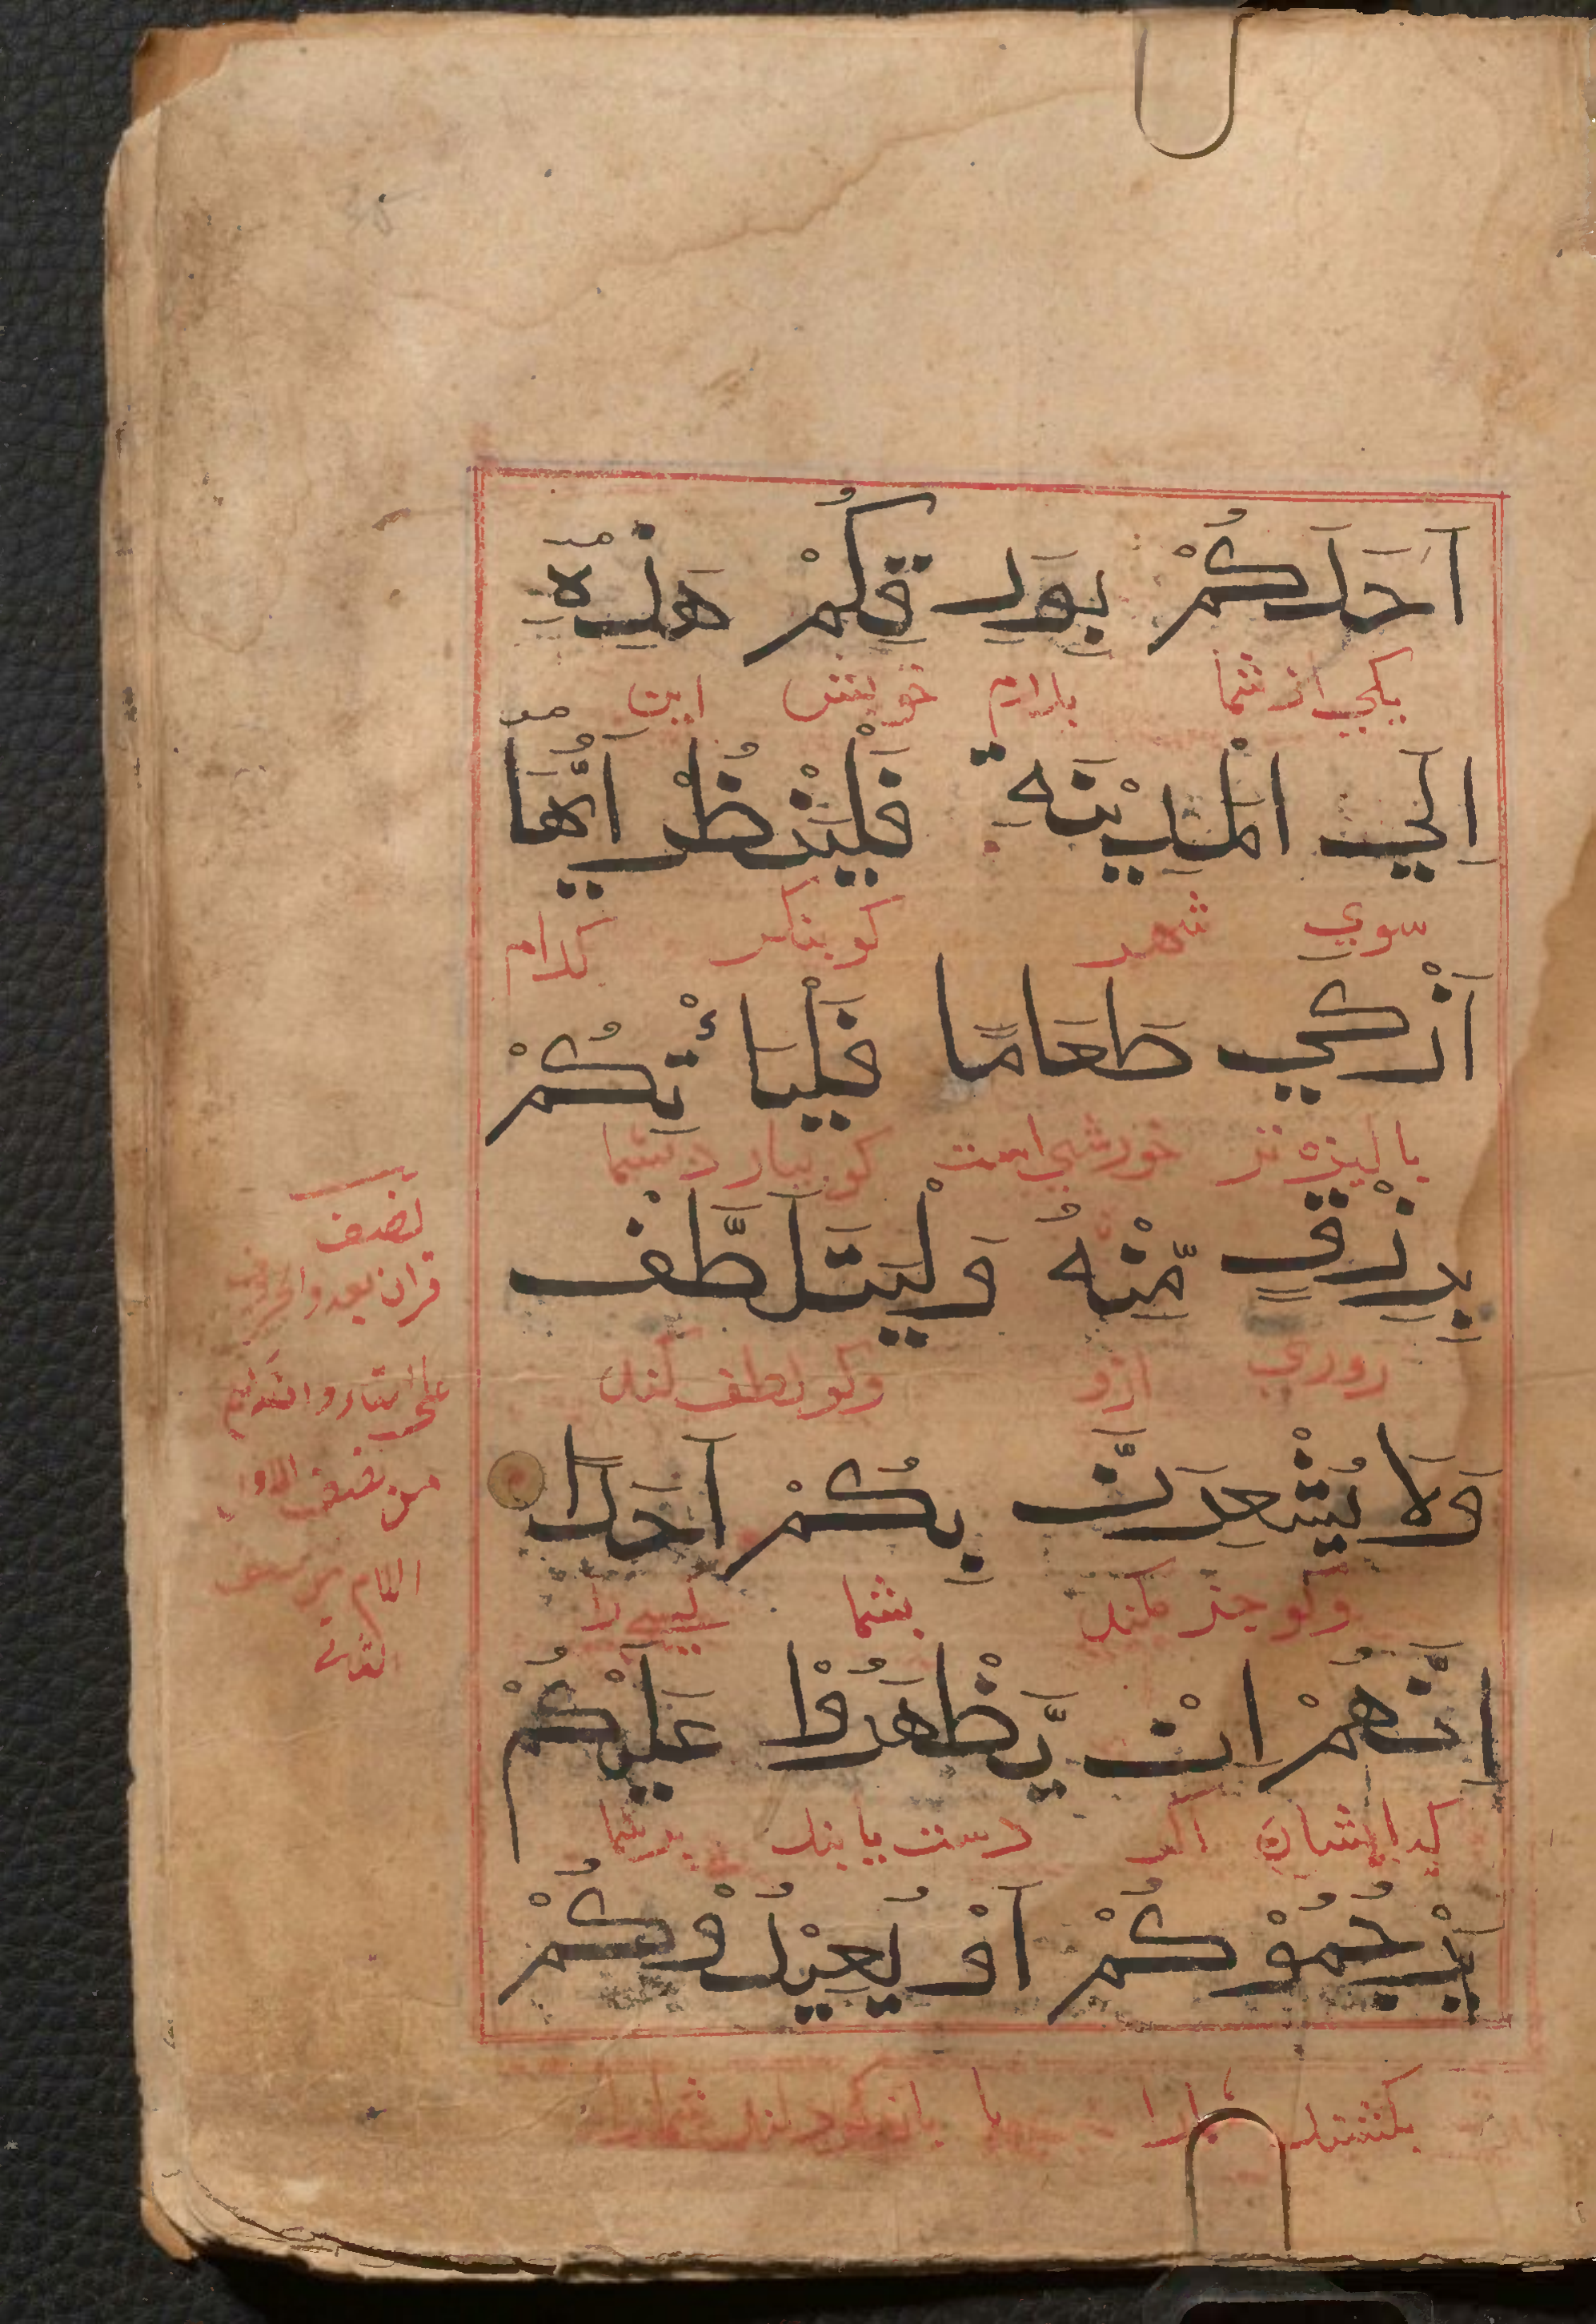 اَحَدَكُمْ بِوَرِقِكُمْ هٰذِهٖ
يكي از شما بدارم خويش اين
اِلَي الْمَدِيْنَةِ فَلْيَنْظُرْ اَيُّهَا
سوي شهر كو بنكر كدام
اَزْكٰي طَعَامًا فَلْيَاْتِكُمْ
باكيزه تر خورشي است كو بيارد شما
بِرِزْقٍ مِّنْهُ وَلْيَتَلَطَّفْ
روزي ازو وكو لطف كند
وَلَا يُشْعِرَنَّ بِكُمْ اَحَدًا
وكو خبر مكند بشما كسي را
اِنَّهُمْ اِنْ يَّظْهَرُوْا عَلَيْكُمْ
كه ايشان اكر دست يابند بر شما
يَرْجُمُوْكُمْ اَوْ يُعِيْدُوْكُمْ
بكشند يا باز كردانند شمارا
نصف
قران بعدد الحروف
من نصف الاول